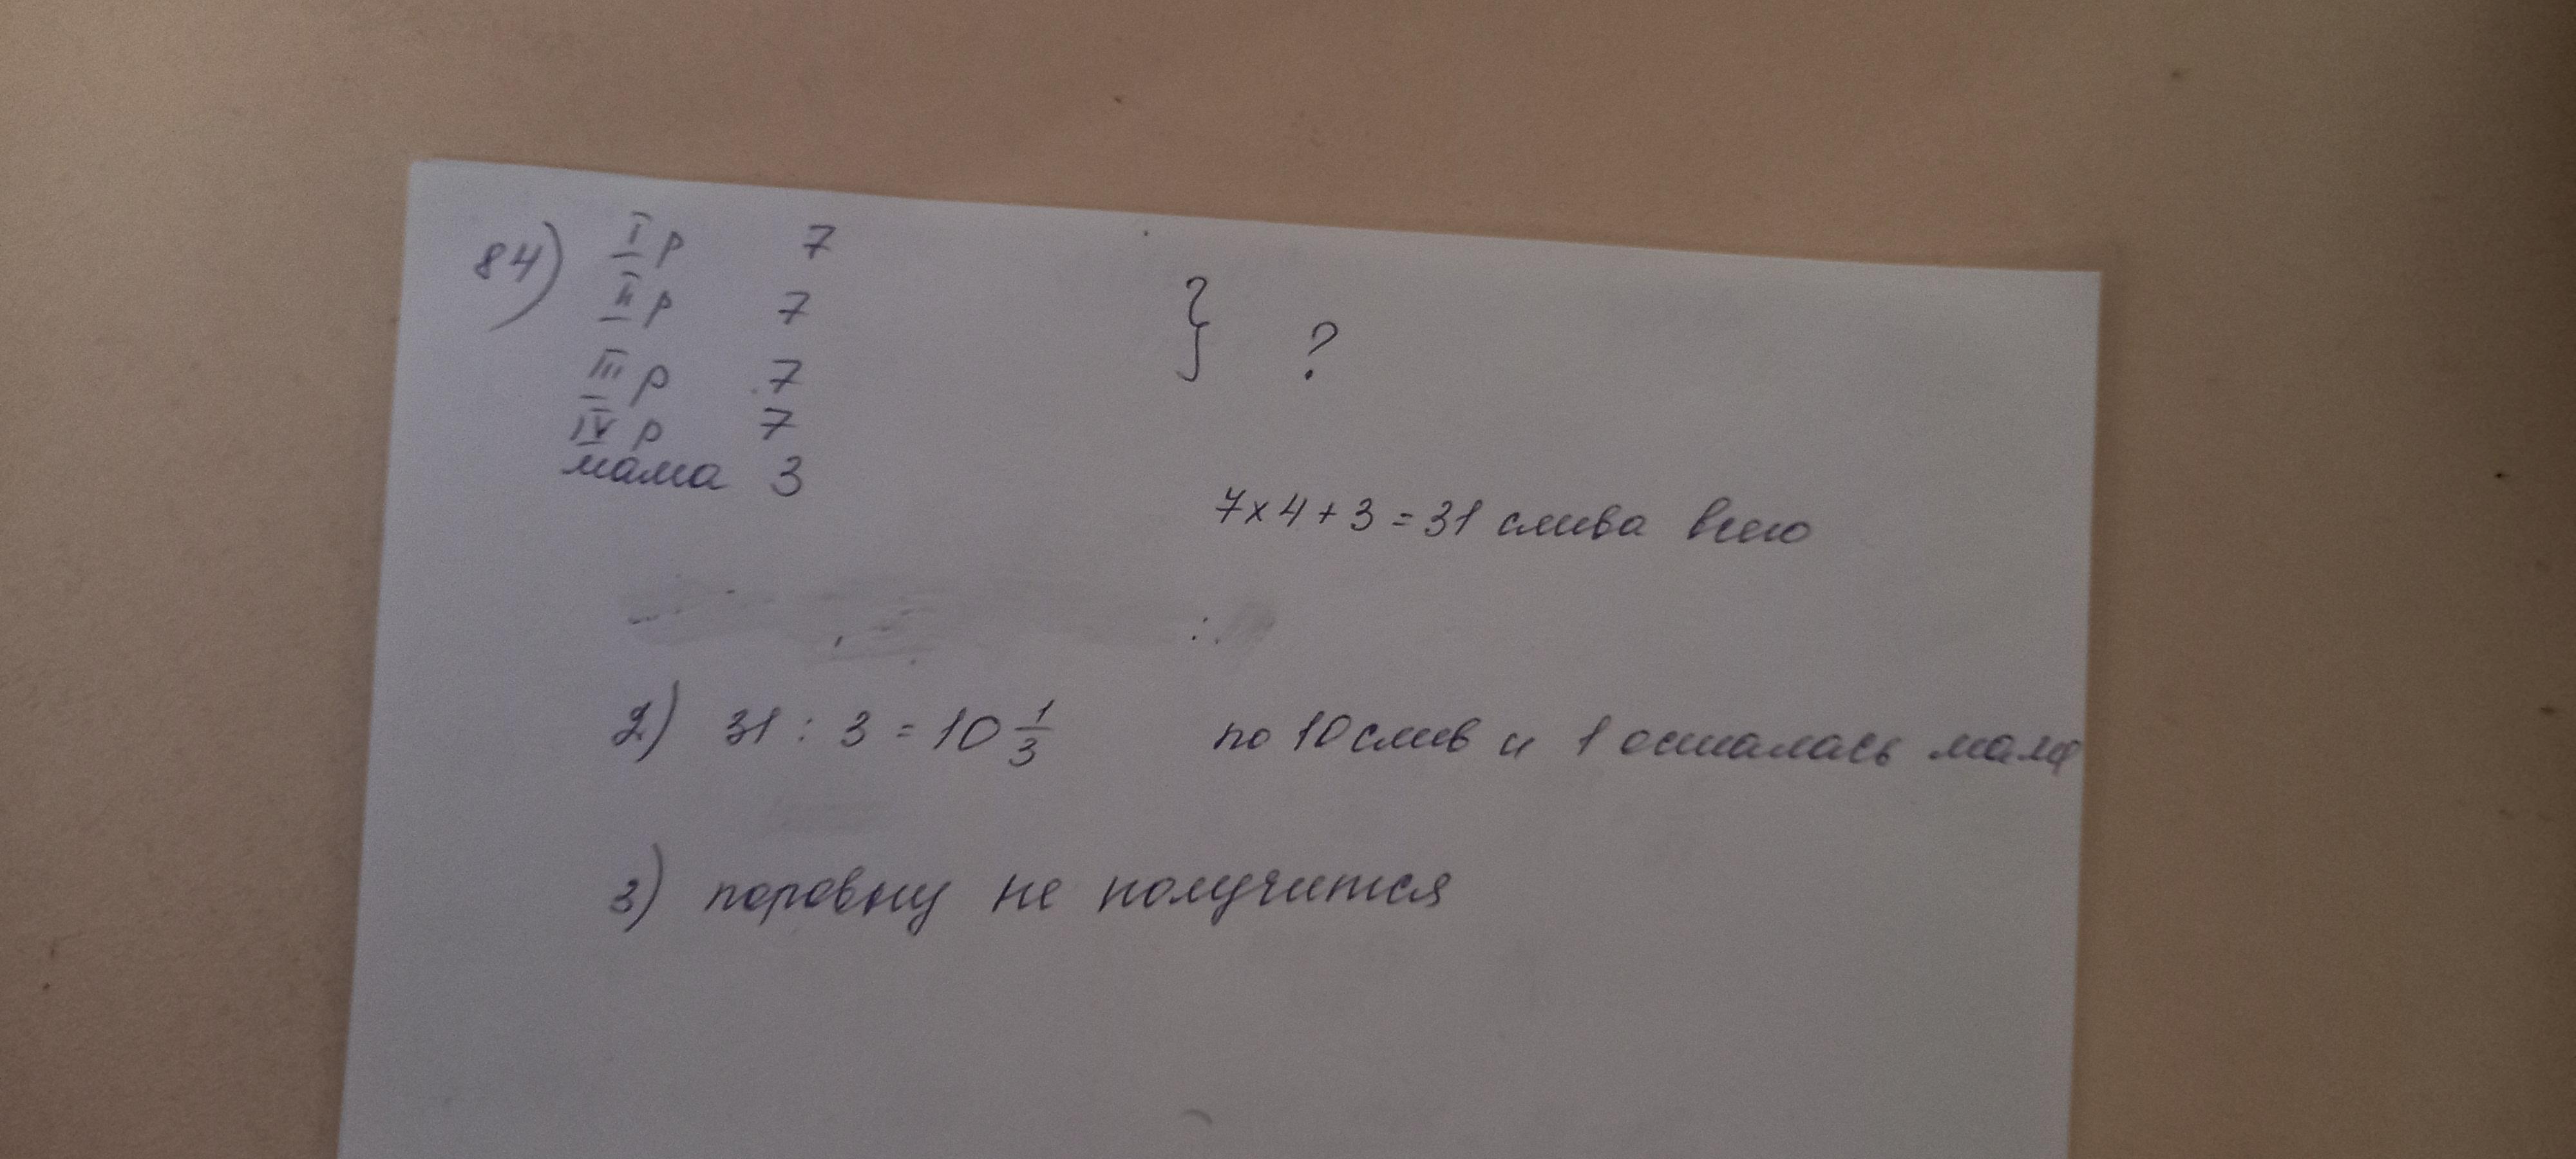 84) I р 7
II р 7
} ?
III р 7
IV р 7
мама 3
7х4+3=31 слива всего
2) 31 : 3 = 10 1/3 по 10 слив и 1 осталась маме
3) поровну не получится